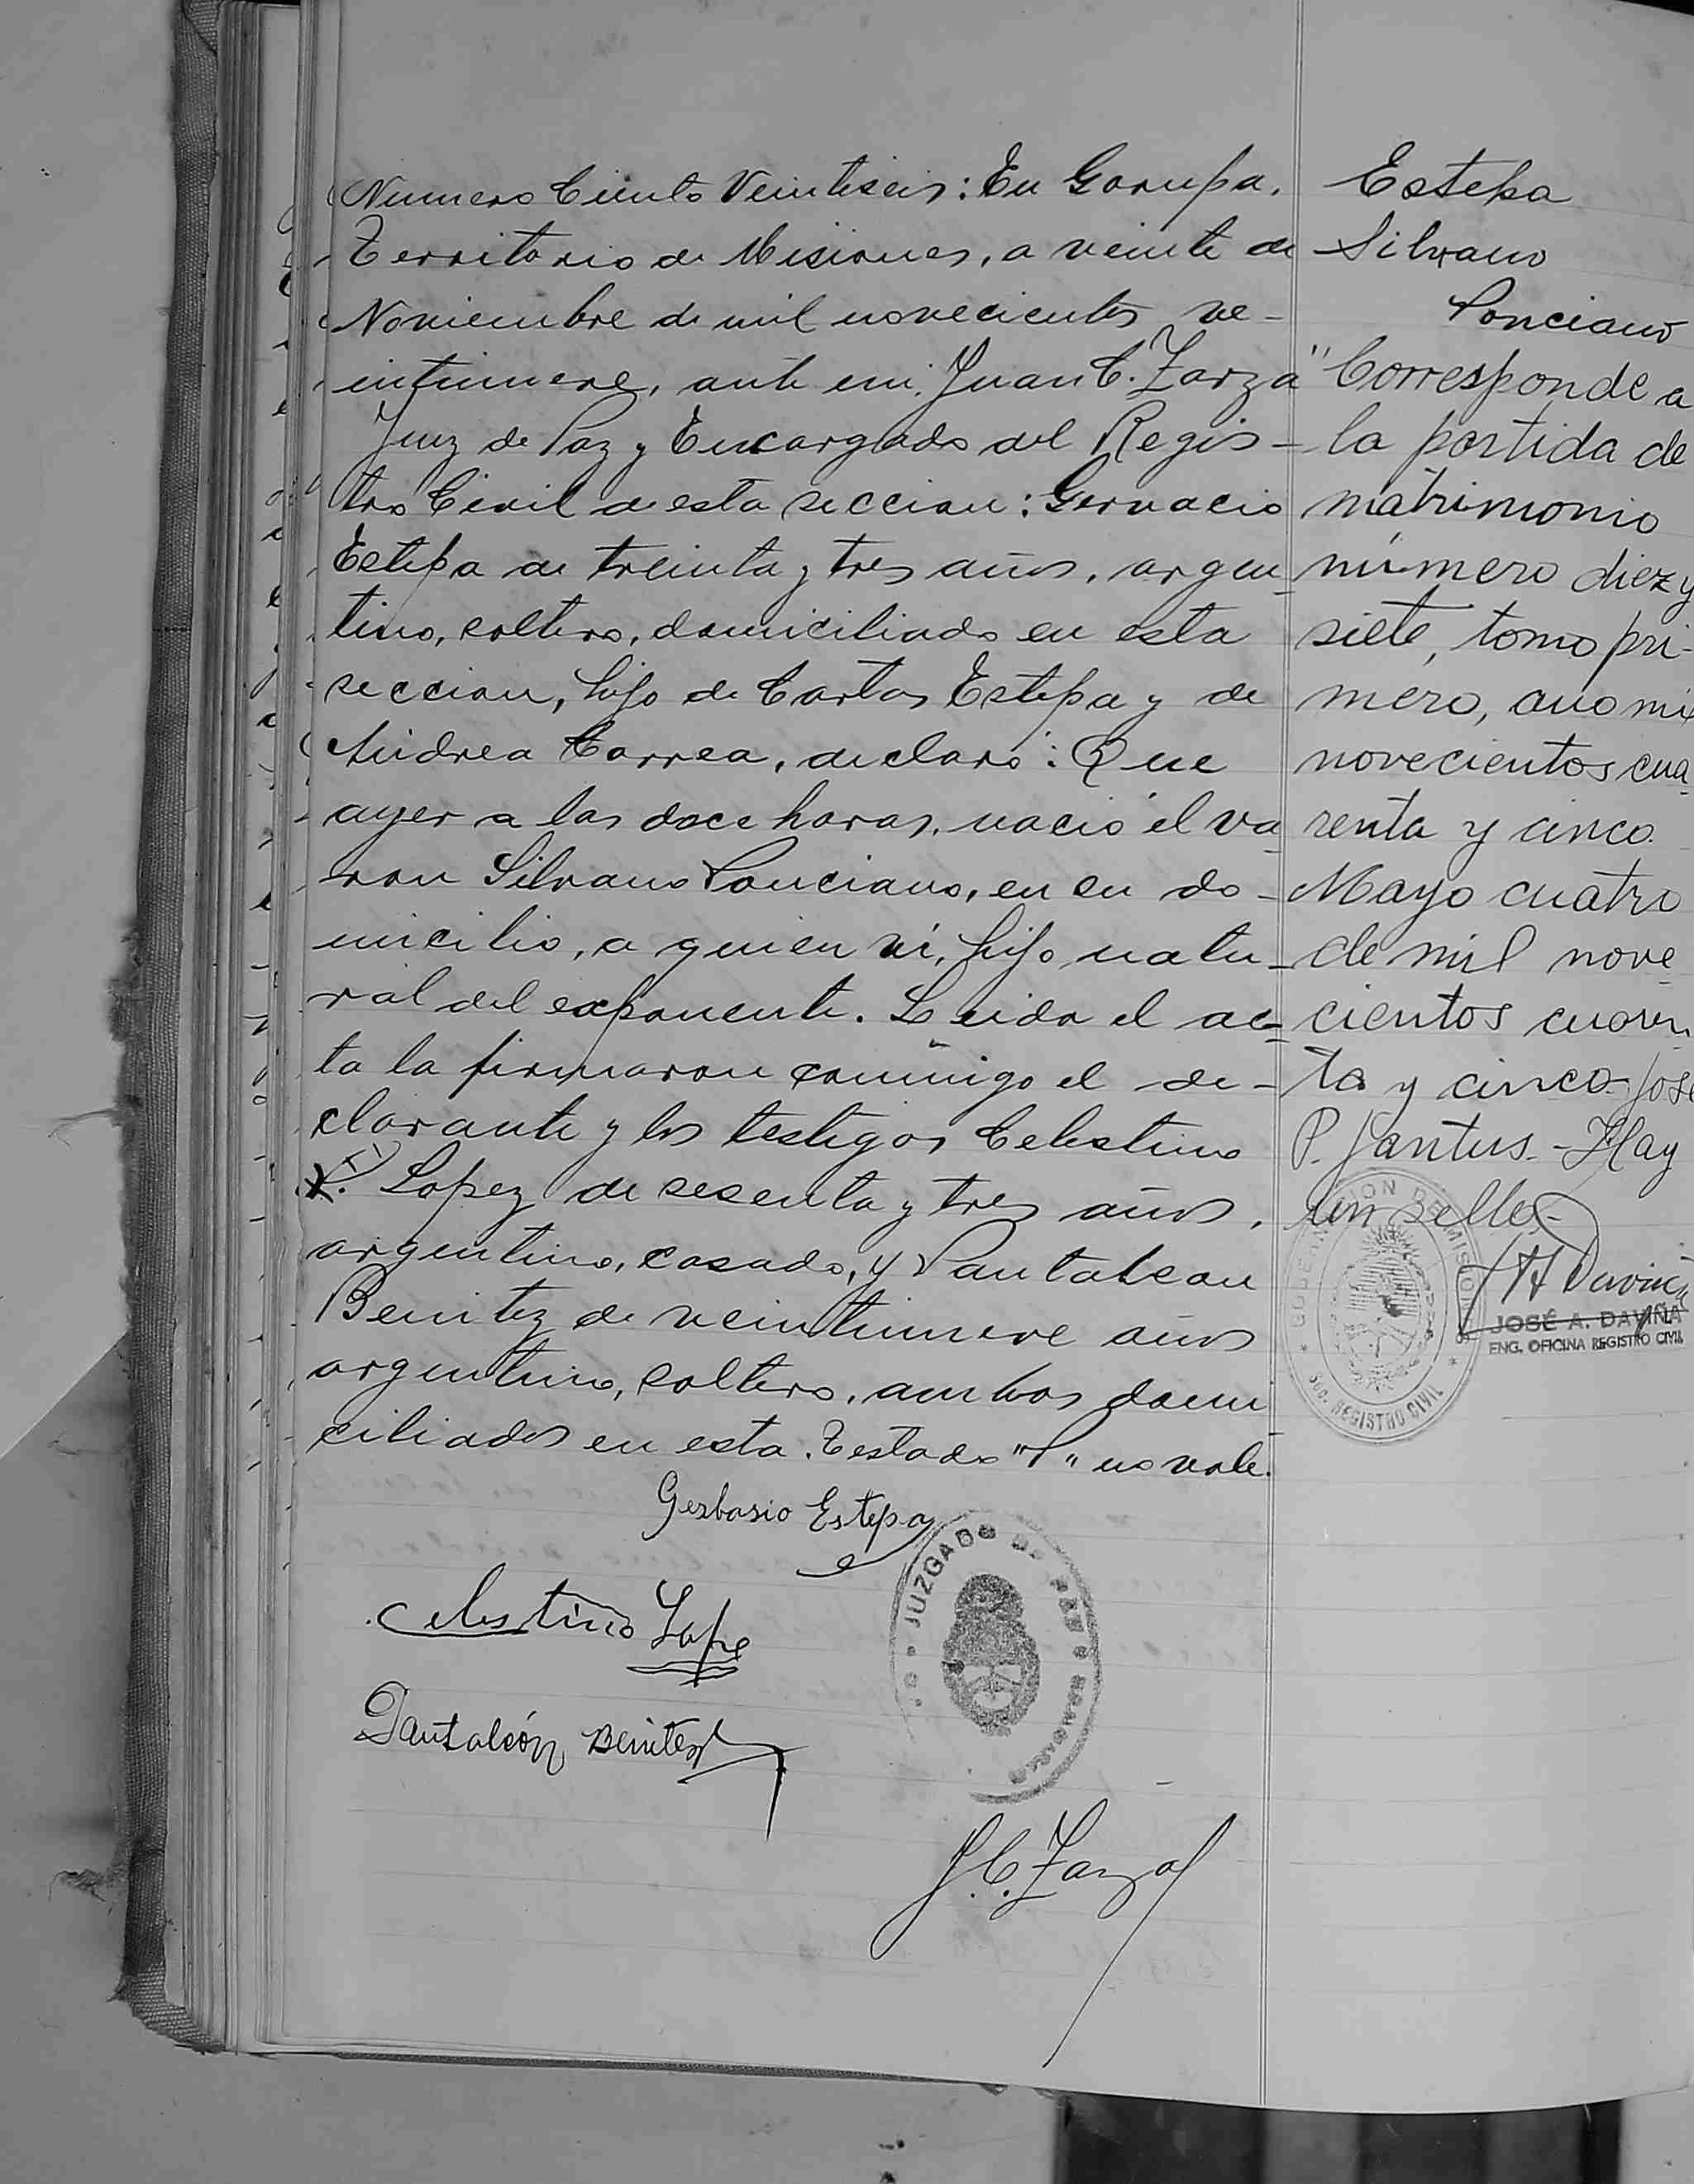 Numero Ciento Veintiseis: En Garupa,
Territorio de Misiones, a veinte de
Noviembre de mil novecientos ve-
intinueve, ante mi, Juan C. Zarza
Juez de Paz y Encargado del Regis-
tro Civil de esta seccion: Gervacio
Estepa de treinta y tres años, argen-
tino, soltero, domiciliado en esta
seccion, hijo de Carlos Estepa y de
Andrea Correa, declaró: Que
ayer a las doce horas, nació el va-
ron Silvano Ponciano, en su do-
micilio, a quien vi, hijo natu-
ral del exponente. Leida el ac-
ta la firmaron conmigo el de-
clarante y los testigos Celestino
Lopez de sesenta y tres años,
argentino, casado, y Pantaleon
Benitez de veintinueve años
argentino, soltero, ambos domi
ciliados en esta. Testado "P" no vale.
Gerbasio Estepa
Celestino Lope
Pantaleón Benitez
J. C. Zarza
JUZGADO DE PAZ
Estepa
Silvano
Ponciano
"Corresponde a
la partida de
matrimonio
número diez y
siete, tomo pri-
mero, año mil
novecientos cua-
renta y cinco.
Mayo cuatro
de mil nove
cientos cuaren
ta y cinco- José
P. Santus.- Hay
un sello.-
GOBERNACION DE MISIONES
SEC. REGISTRO CIVIL
JOSÉ A. DAVIÑA
ENC. OFICINA REGISTRO CIVIL